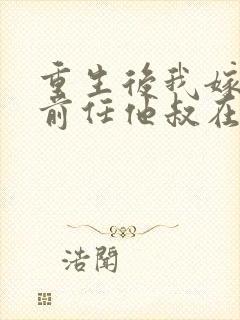 重生後我嫁
前任他叔在
浩闻